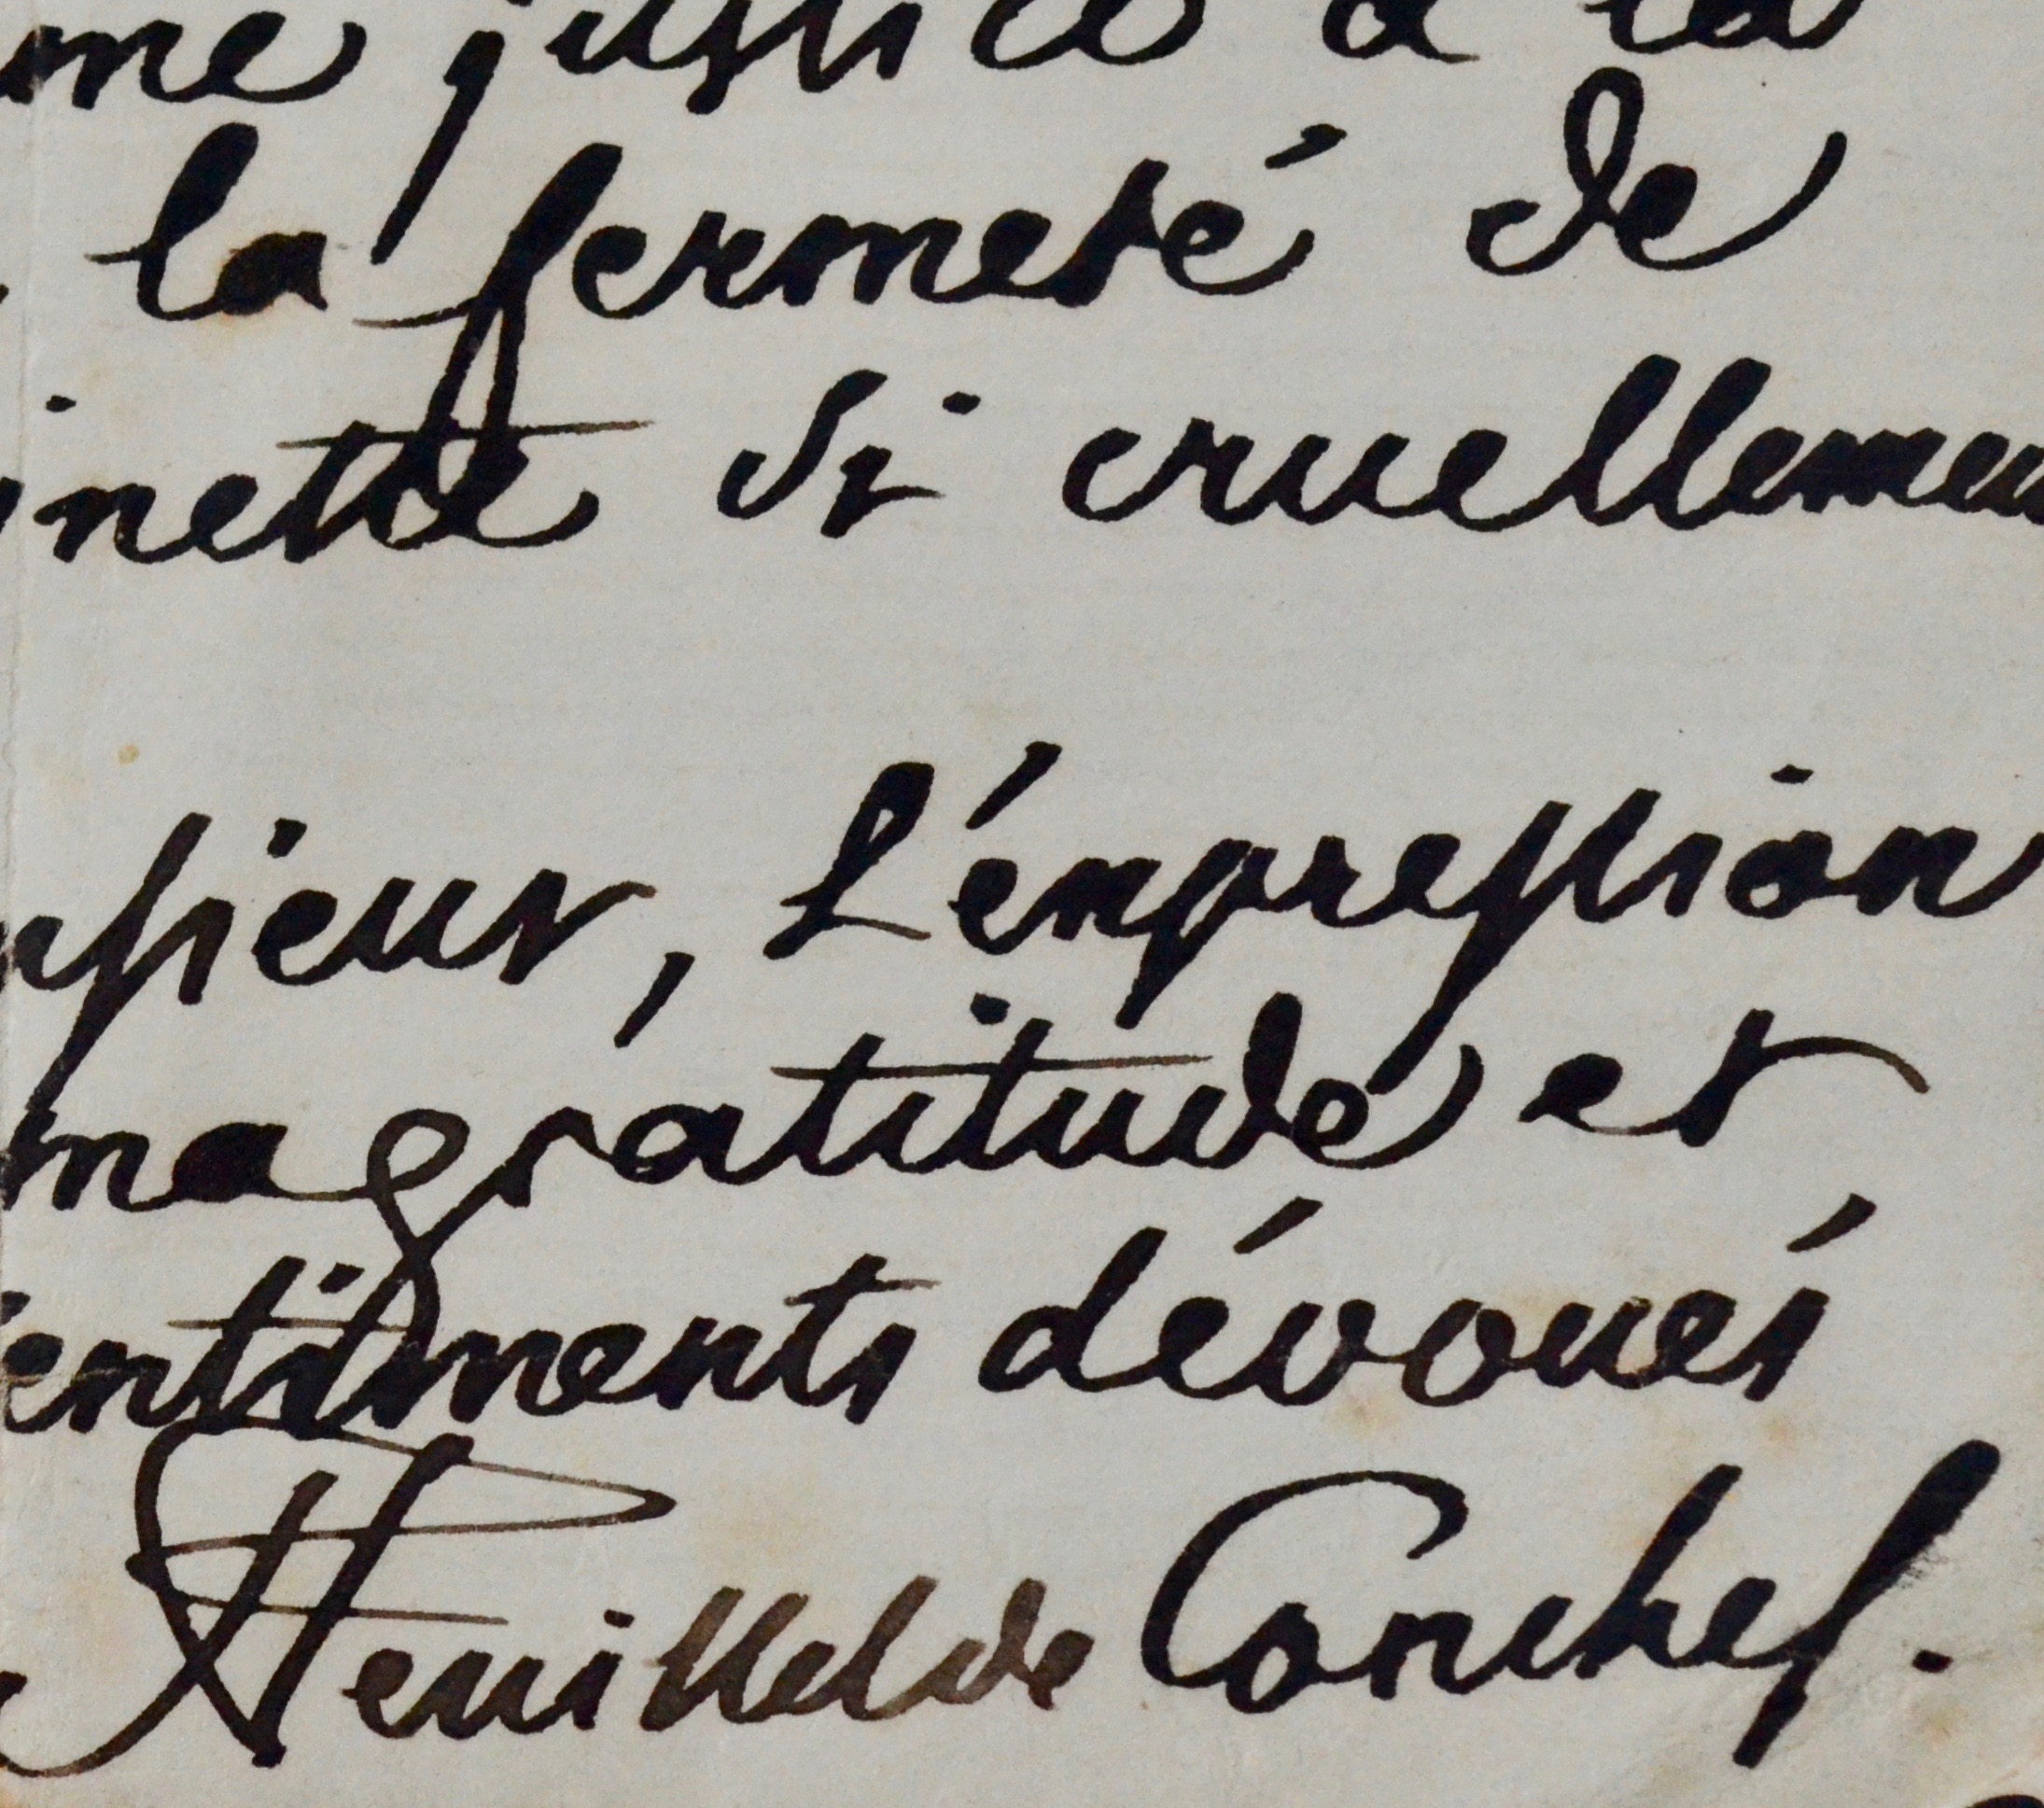 me justice à la
la fermeté de
inette si cruellemen
ssieur, L'éxpression
ma gratitude et
entiments dévoués
Feuillet de Conches.